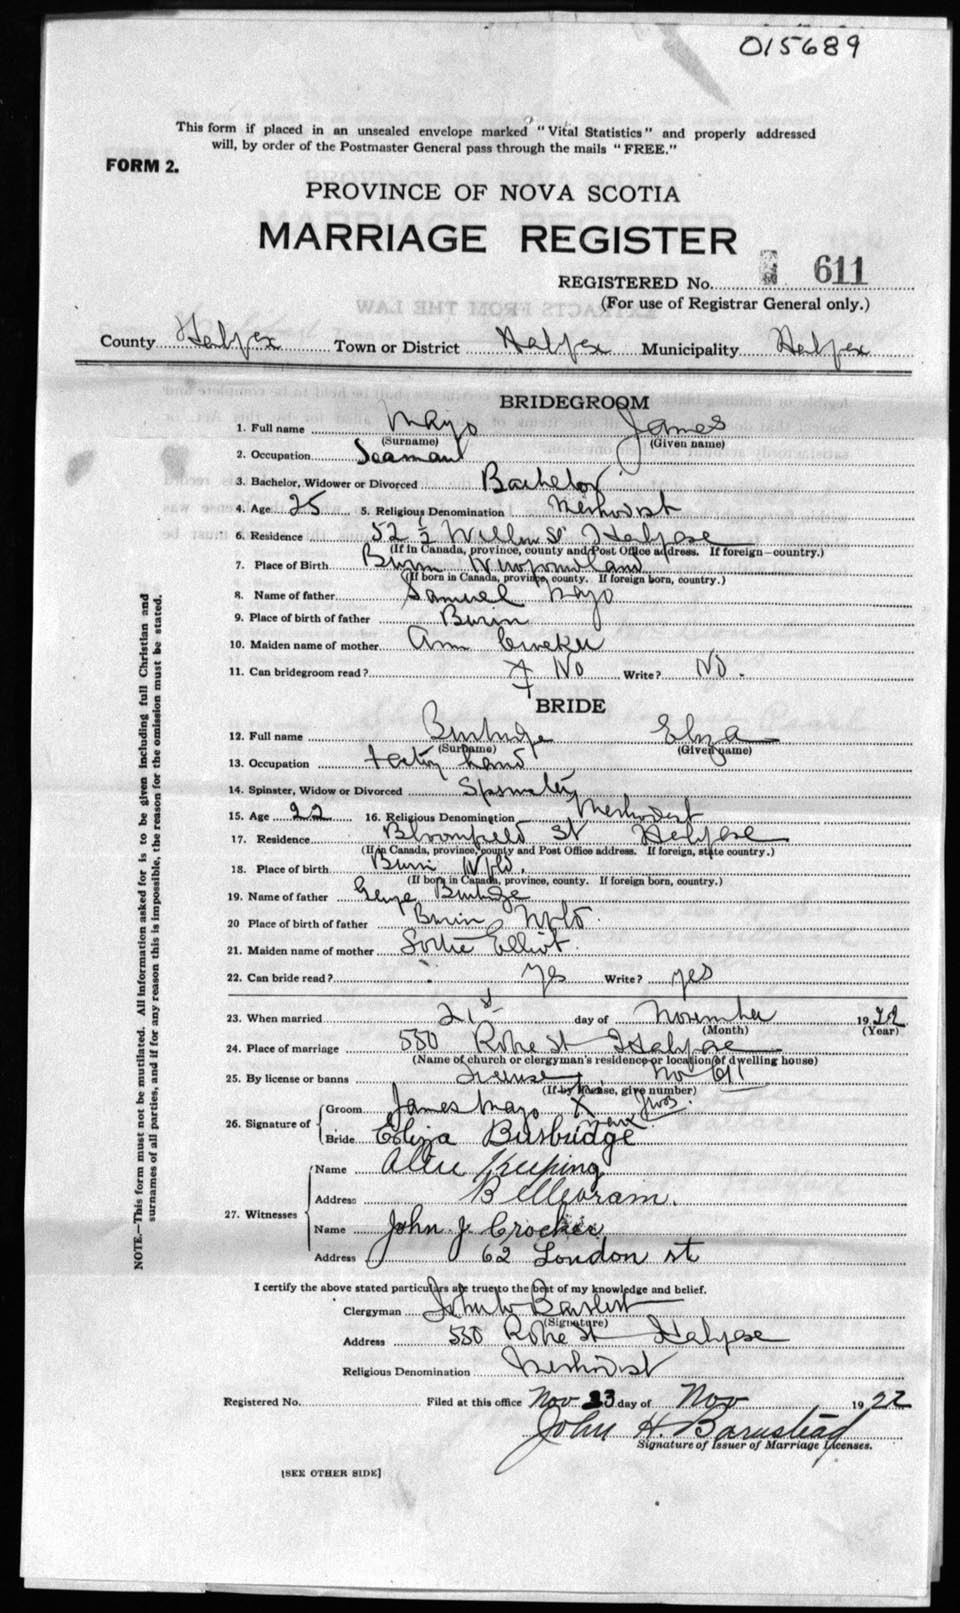 015689
This form if placed in an unsealed envelope marked "Vital Statistics" and properly addressed
will, by order of the Postmaster General pass through the mails "FREE."
FORM 2.
PROVINCE OF NOVA SCOTIA
MARRIAGE REGISTER
REGISTERED No. 611
(For use of Registrar General only.)
County Halifax Town or District Halifax Municipality Halifax
BRIDEGROOM
1. Full name Mayo James
(Surname) (Given name)
2. Occupation Seaman
3. Bachelor, Widower or Divorced Bachelor
4. Age 25 5. Religious Denomination Methodist
6. Residence 52 1/2 St Halifax
(If in Canada, province, county and Post Office address. If foreign—country.)
7. Place of Birth Burin Newfoundland
(If born in Canada, province, county. If foreign born, country.)
8. Name of father Samuel Mayo
9. Place of birth of father Burin
10. Maiden name of mother Ann
11. Can bridegroom read? No Write? No.
BRIDE
12. Full name Burbidge Eliza
(Surname) (Given name)
13. Occupation hand
14. Spinster, Widow or Divorced Spinster
15. Age 22 16. Religious Denomination Methodist
17. Residence Bloomfield St Halifax
(If in Canada, province, county and Post Office address. If foreign, state country.)
18. Place of birth Burin Nfld.
(If born in Canada, province, county. If foreign born, country.)
19. Name of father George Burbidge
20 Place of birth of father Burin Nfld.
21. Maiden name of mother Elliot
22. Can bride read? yes Write? yes
23. When married 21st day of November 1922
(Month) (Year)
24. Place of marriage 550 Robie St Halifax
(Name of church or clergyman's residence or location of dwelling house)
25. By license or banns License No 611
(If by license, give number)
26. Signature of Groom James Mayo X mark
Bride Eliza Busbudge
27. Witnesses Name Keeping
Address
Name John J. Crocker
Address 62 London st
I certify the above stated particulars are true to the best of my knowledge and belief.
Clergyman John W Bartlett
(Signature)
Address 550 Robie St Halifax
Religious Denomination Methodist
Registered No. Filed at this office Nov 23 day of Nov 1922
John H. Barnstead
Signature of Issuer of Marriage Licenses.
[SEE OTHER SIDE]
NOTE.—This form must not be mutilated. All information asked for is to be given including full Christian and
surnames of all parties, and if for any reason this is impossible, the reason for the omission must be stated.